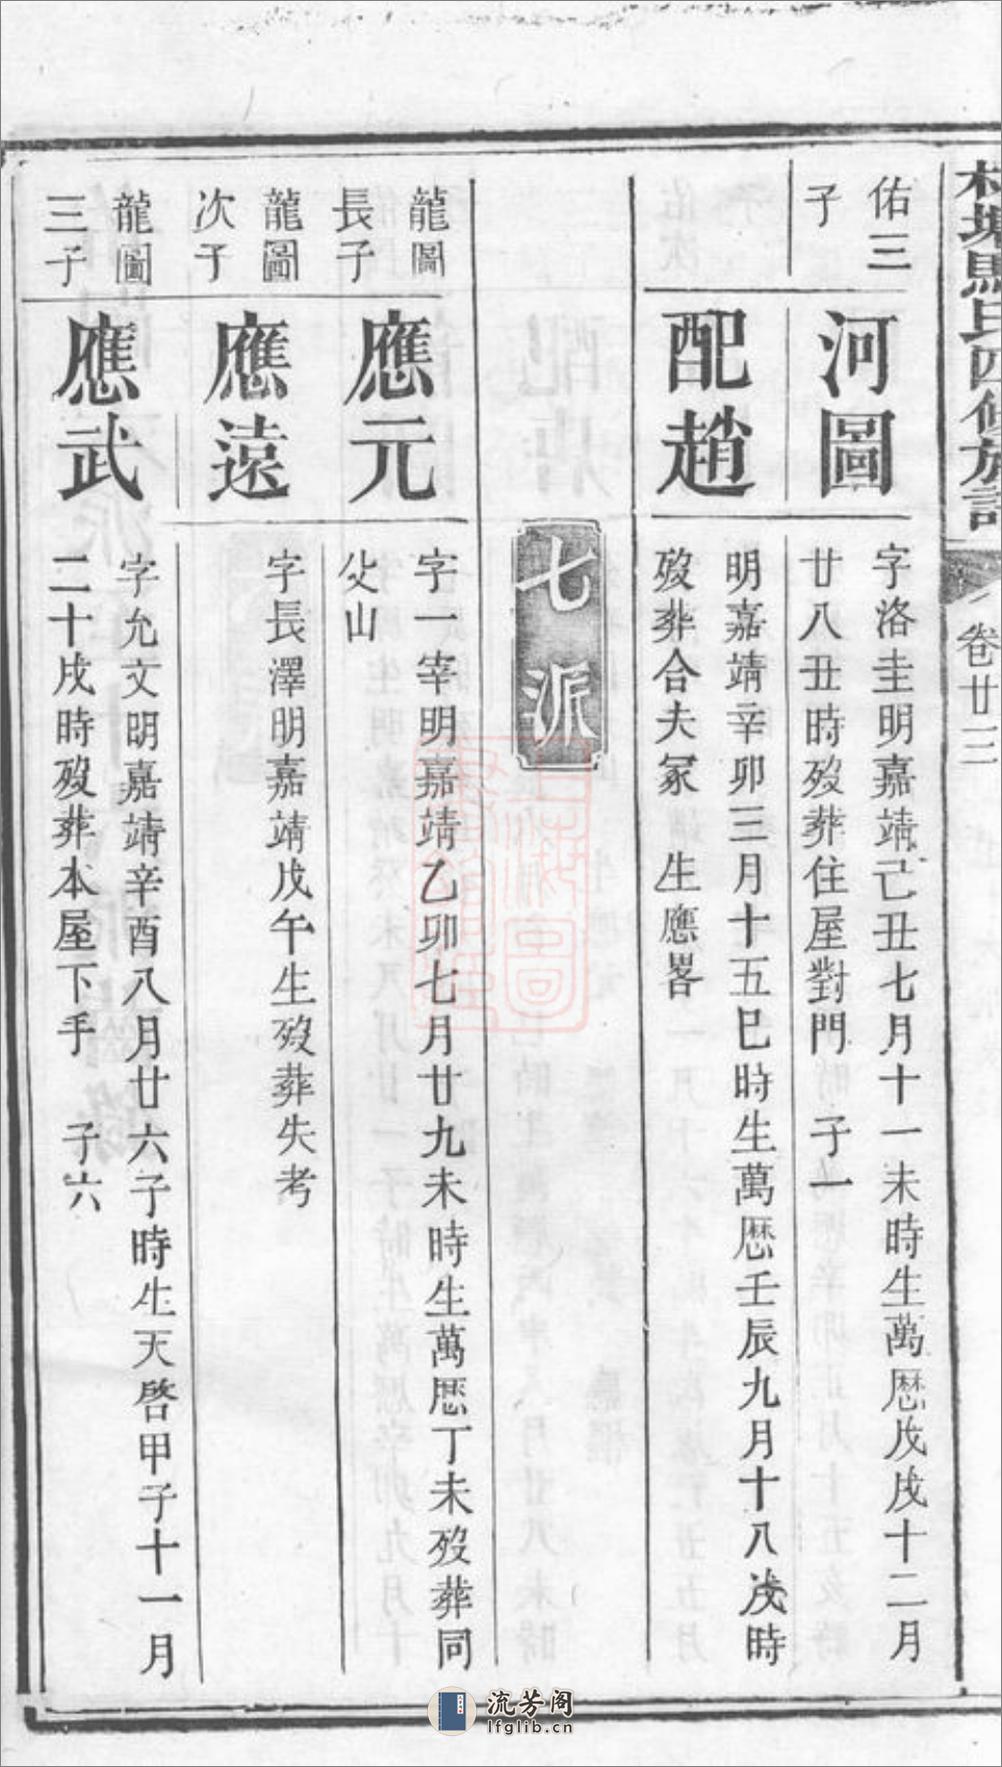 馬氏四修族譜
卷廿三
佑三
子
河圖
字洛圭明嘉靖己丑七月十一未時生萬厯戊戌十二月
廿八丑時歿葬住屋對門 子一
配趙
明嘉靖辛卯三月十五巳時生萬厯壬辰九月十八戌時
歿葬合夫冢 生應畧
七派
龍圖
長子
應元
字一宰明嘉靖乙卯七月廿九未時生萬厯丁未歿葬同
父山
龍圖
次子
應遠
字長澤明嘉靖戊午生歿葬失考
龍圖
三子
應武
字允文明嘉靖辛酉八月廿六子時生天啓甲子十一月
二十戌時歿葬本屋下手 子六
流芳阁
lfglib.cn